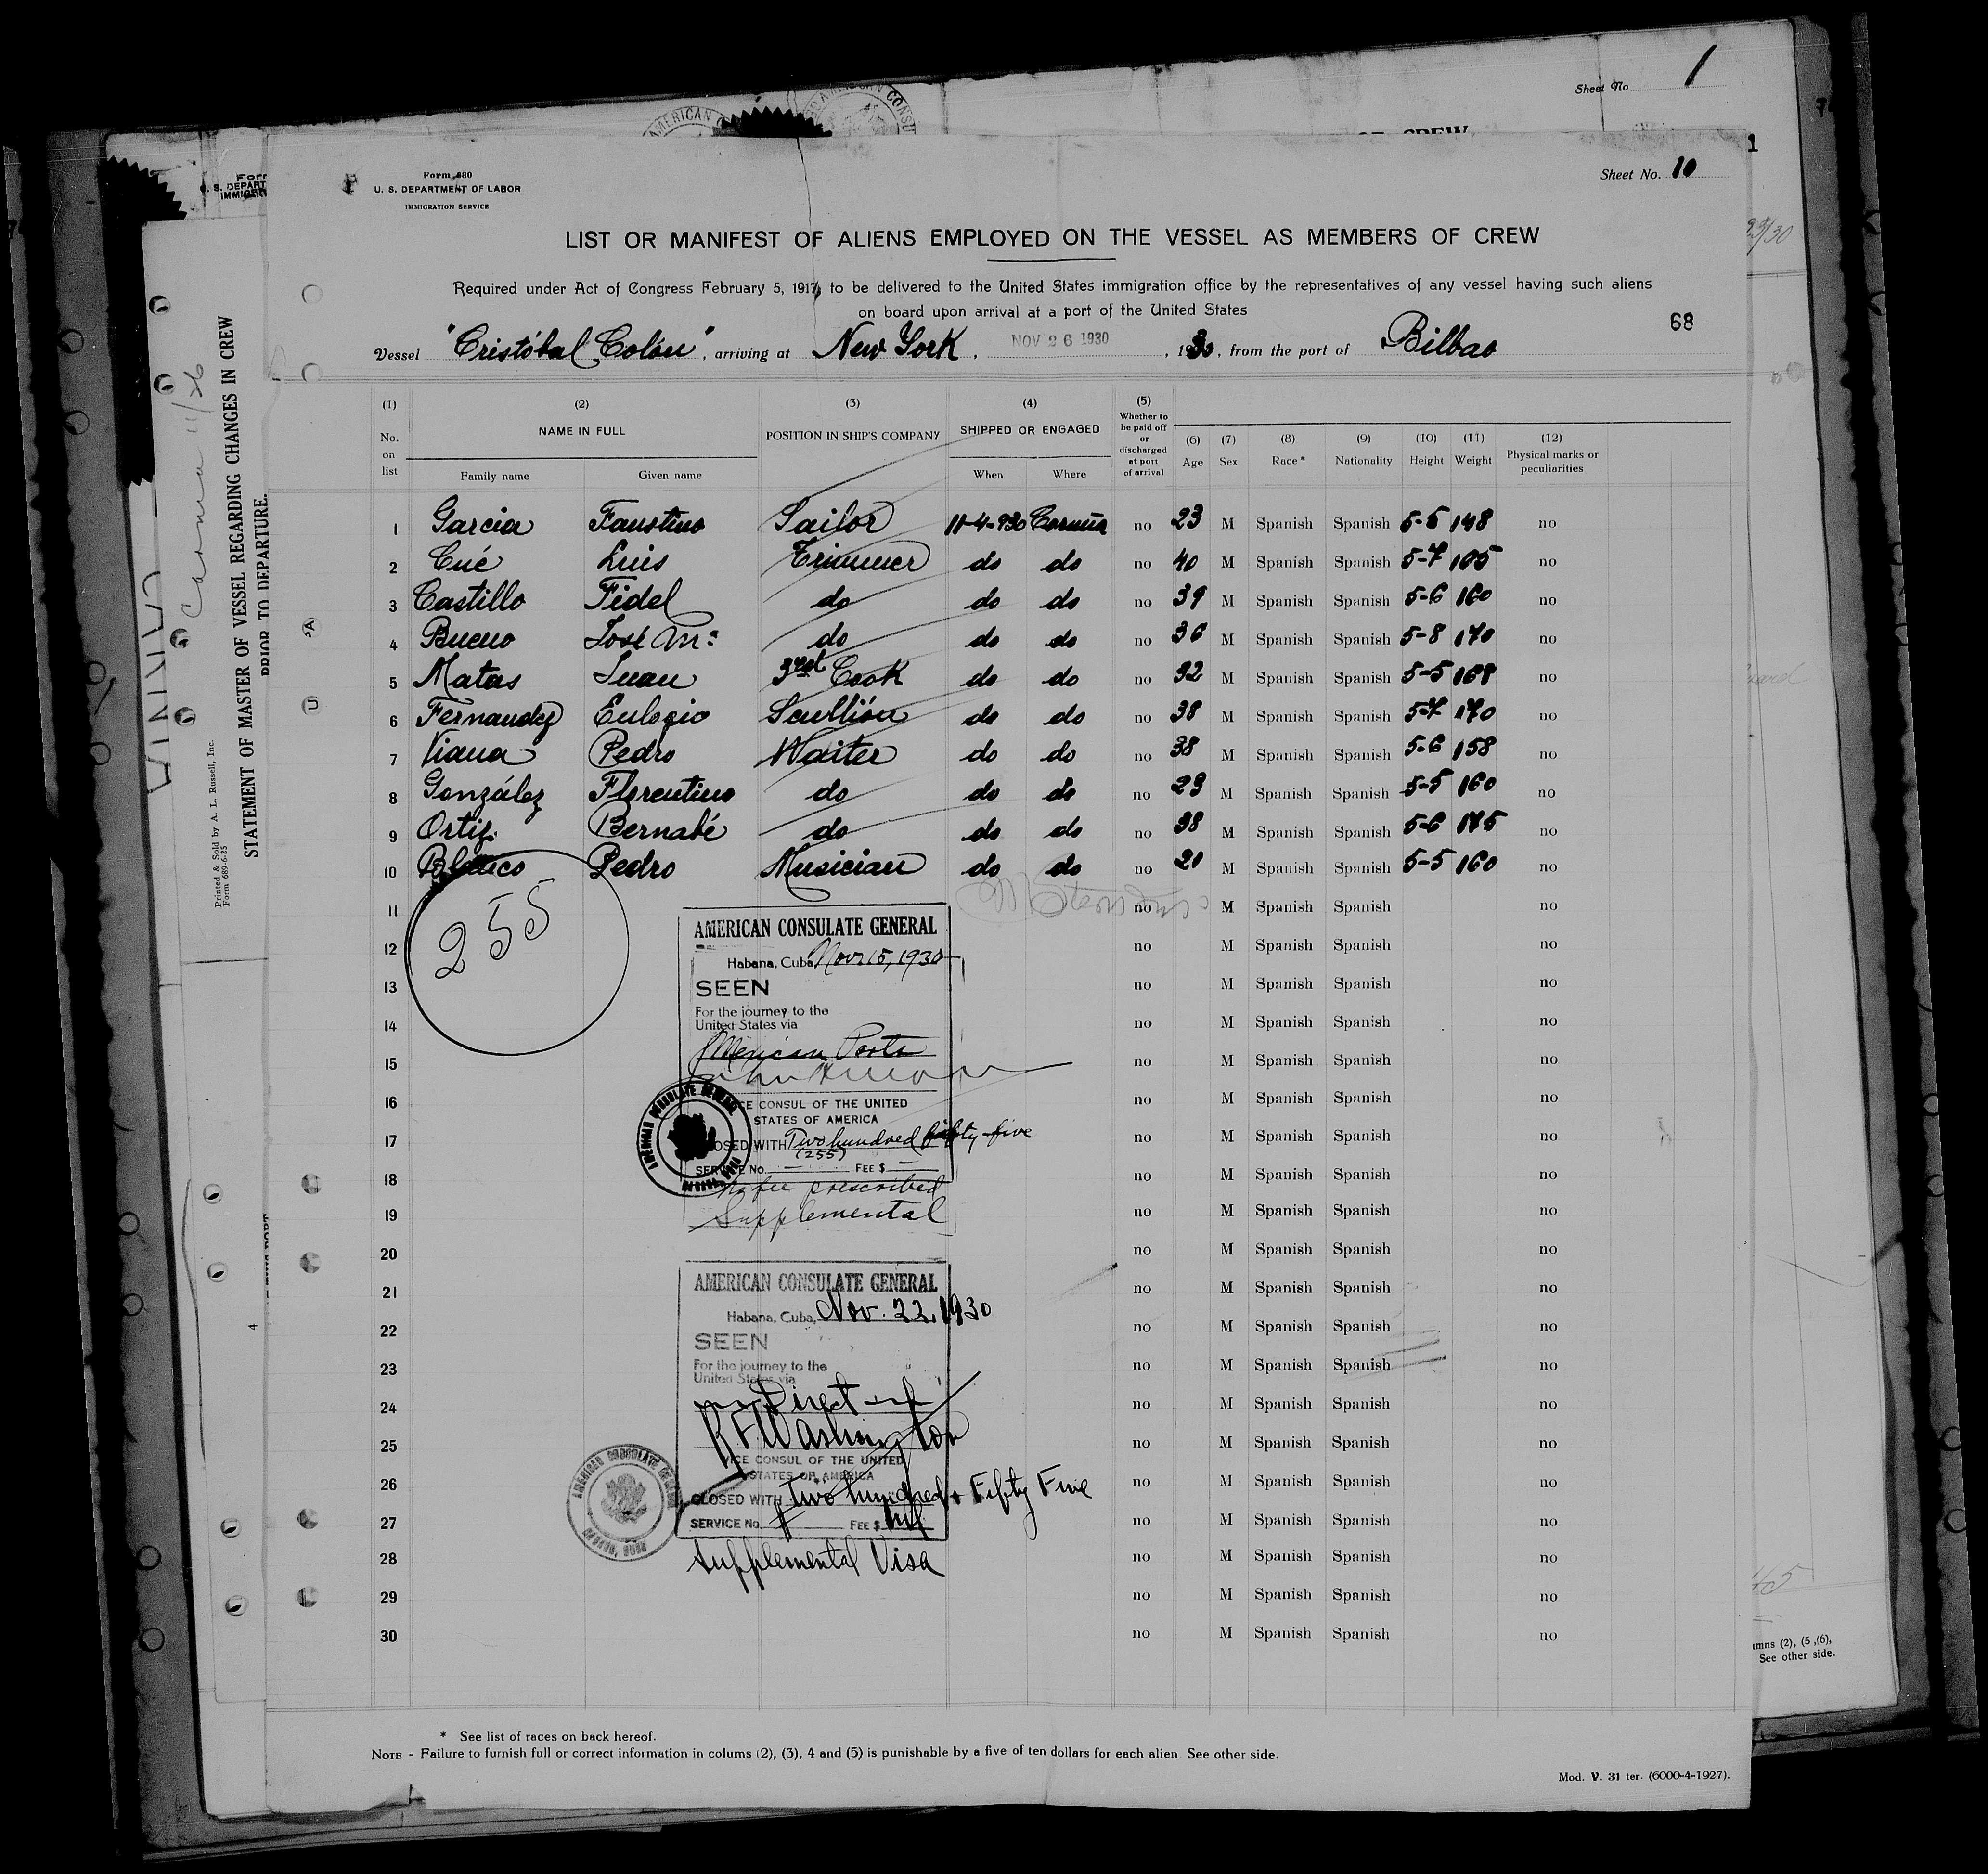 Sheet No 1
AMERICAN CONSU
Form 680
U. S. DEPARTMENT OF LABOR
IMMIGRATION SERVICE
Sheet No. 10
LIST OR MANIFEST OF ALIENS EMPLOYED ON THE VESSEL AS MEMBERS OF CREW
Required under Act of Congress February 5, 1917, to be delivered to the United States immigration office by the representatives of any vessel having such aliens
on board upon arrival at a port of the United States
68
Vessel "Cristóbal Colón", arriving at New York, NOV 26 1930, 1930, from the port of Bilbao
(1) (2) (3) (4) (5)
No. on list NAME IN FULL POSITION IN SHIP'S COMPANY SHIPPED OR ENGAGED Whether to be paid off or discharged at port of arrival (6) Age (7) Sex (8) Race * (9) Nationality (10) Height (11) Weight (12) Physical marks or peculiarities
Family name Given name When Where
1 Garcia Faustino Sailor 11-4-930 Coruña no 23 M Spanish Spanish 5-5 148 no
2 Cué Luis Trimmer do do no 40 M Spanish Spanish 5-7 105 no
3 Castillo Fidel do do do no 39 M Spanish Spanish 5-6 160 no
4 Bueno José Mª do do do no 36 M Spanish Spanish 5-8 170 no
5 Matas Juan 3rd Cook do do no 32 M Spanish Spanish 5-5 168 no
6 Fernandez Eulogio Scullión do do no 38 M Spanish Spanish 5-7 170 no
7 Viana Pedro Waiter do do no 38 M Spanish Spanish 5-6 158 no
8 González Florentino do do do no 29 M Spanish Spanish 5-5 160 no
9 Ortiz Bernabé do do do no 38 M Spanish Spanish 5-6 175 no
10 Blanco Pedro Musician do do no 20 M Spanish Spanish 5-5 160 no
11 no M Spanish Spanish no
12 no M Spanish Spanish no
13 no M Spanish Spanish no
14 no M Spanish Spanish no
15 no M Spanish Spanish no
16 no M Spanish Spanish no
17 no M Spanish Spanish no
18 no M Spanish Spanish no
19 no M Spanish Spanish no
20 no M Spanish Spanish no
21 no M Spanish Spanish no
22 no M Spanish Spanish no
23 no M Spanish Spanish no
24 no M Spanish Spanish no
25 no M Spanish Spanish no
26 no M Spanish Spanish no
27 no M Spanish Spanish no
28 no M Spanish Spanish no
29 no M Spanish Spanish no
30 no M Spanish Spanish no
255
AMERICAN CONSULATE GENERAL
Habana, Cuba, Nov. 15, 1930
SEEN
For the journey to the
United States via
Mexican Ports
VICE CONSUL OF THE UNITED
STATES OF AMERICA
CLOSED WITH Two hundred fifty-five
(255)
SERVICE No. — FEE $ —
No fee prescribed
Supplemental
AMERICAN CONSULATE GENERAL
Habana, Cuba, Nov. 22, 1930
SEEN
For the journey to the
United States via
Direct
R F Washington
VICE CONSUL OF THE UNITED
STATES OF AMERICA
CLOSED WITH Two hundred + Fifty Five
SERVICE No. FEE $ nil
Supplemental Visa
AMERICAN CONSULATE GENERAL
HABANA, CUBA
* See list of races on back hereof.
NOTE - Failure to furnish full or correct information in colums (2), (3), 4 and (5) is punishable by a five of ten dollars for each alien See other side.
Mod. V. 31 ter. (6000-4-1927).
STATEMENT OF MASTER OF VESSEL REGARDING CHANGES IN CREW
PRIOR TO DEPARTURE.
Printed & Sold by A. L. Russell, Inc.
Form 689-6-25
4
umns (2), (5 ,(6),
See other side.